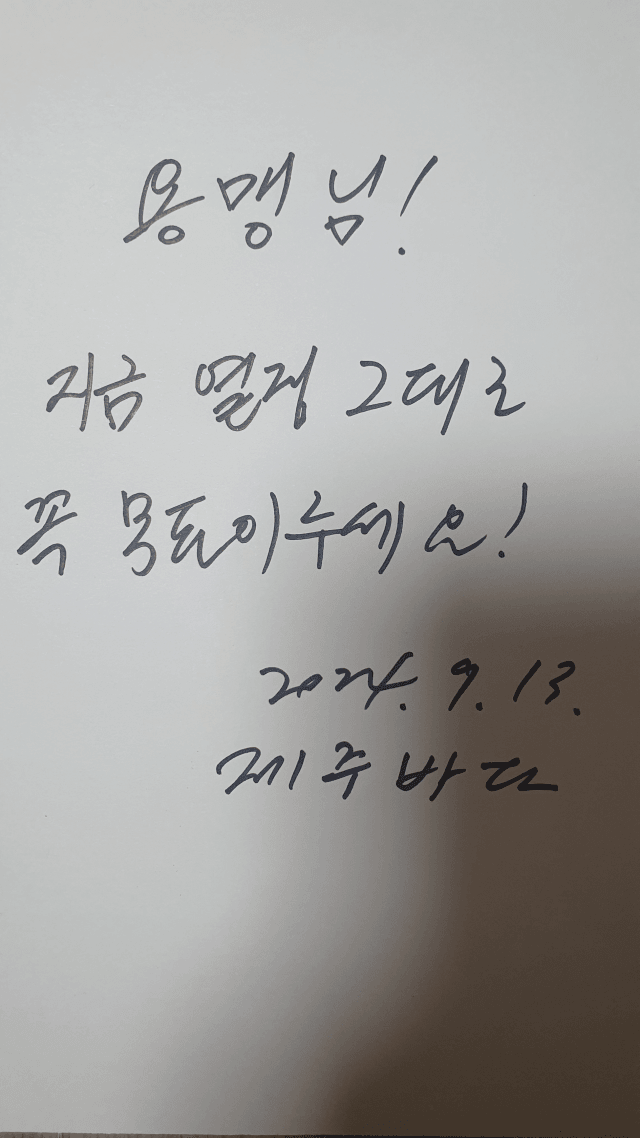 용맹님!
지금 열정 그대로
꼭 목표이루세요!
2024. 9. 13.
제주바다